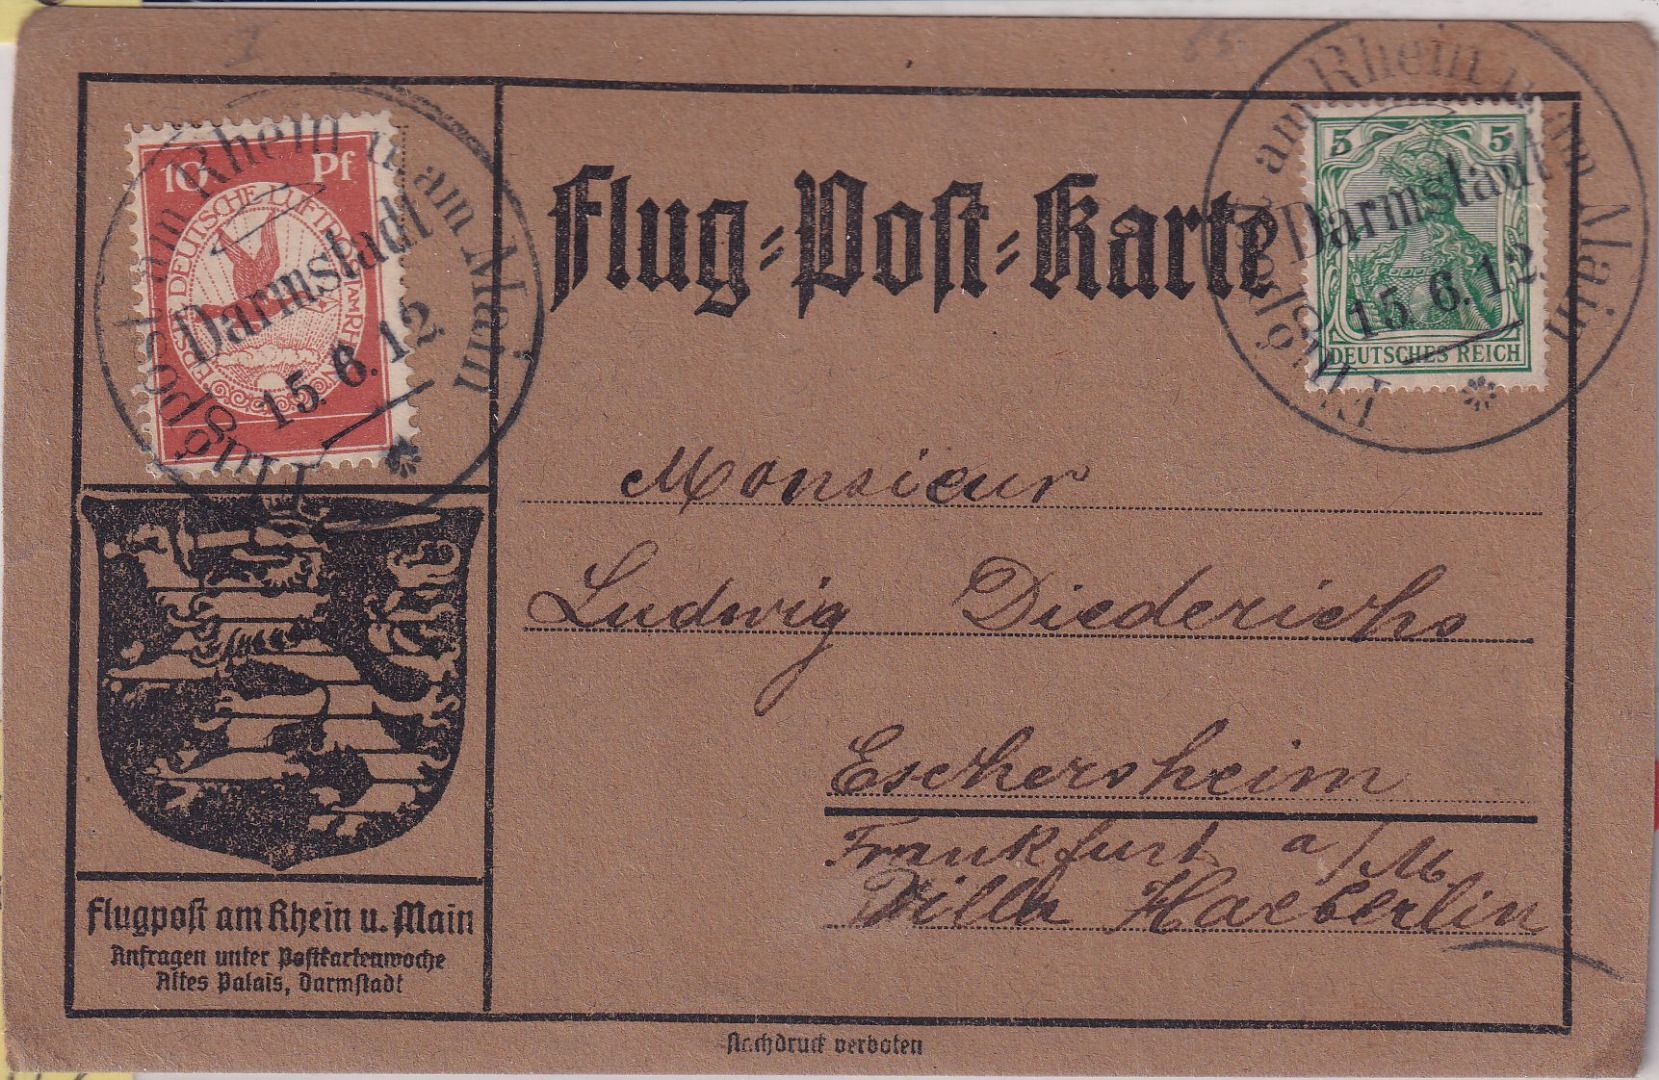 10 Pf
ERSTE DEUTSCHE LUFTPOST AM RHEIN
Flugpost am Rhein u. am Main
Darmstadt
15. 6. 12.
Flug-Post-Karte
5 5
DEUTSCHES REICH
Flugpost am Rhein u. am Main
Darmstadt
15. 6. 12.
Monsieur
Ludwig Diederichs
Eschersheim
Frankfurt a/M
Villa Haeberlin
Flugpost am Rhein u. Main
Anfragen unter Postkartenwoche
Altes Palais, Darmstadt
Nachdruck verboten